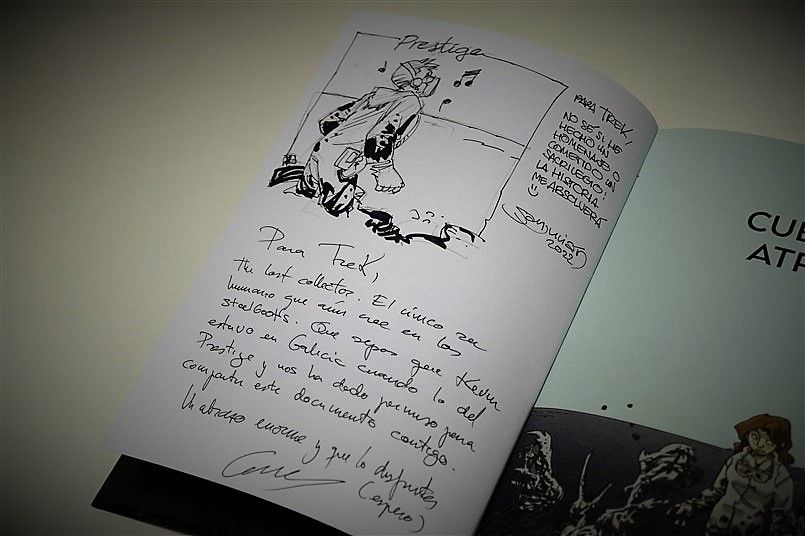 Prestige
PARA TREK,
NO SÉ SI HE
HECHO UN
HOMENAJE O
COMETIDO UN
SACRILEGIO!
LA HISTORIA
ME ABSOLVERÁ
2022
Para Trek,
the last collector. El único ser
humano que aún cree en los
steelbooks. Que sepas que Kevin
estuvo en Galicia cuando lo del
Prestige y nos ha dado permiso para
compartir este documento contigo.
Un abrazo enorme y que lo disfrutes
(espero)
CUE
ATR